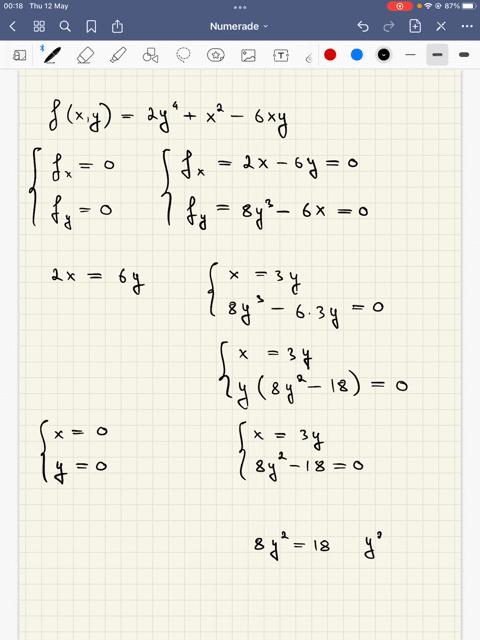 00:18 Thu 12 May
87%
Numerade
T
f(x,y) = 2y⁴ + x² - 6xy
{ fx = 0 { fx = 2x - 6y = 0
fy = 0 fy = 8y³ - 6x = 0
2x = 6y { x = 3y
8y³ - 6.3y = 0
{ x = 3y
y(8y² - 18) = 0
{ x = 0 { x = 3y
y = 0 8y² - 18 = 0
8y² = 18 y²